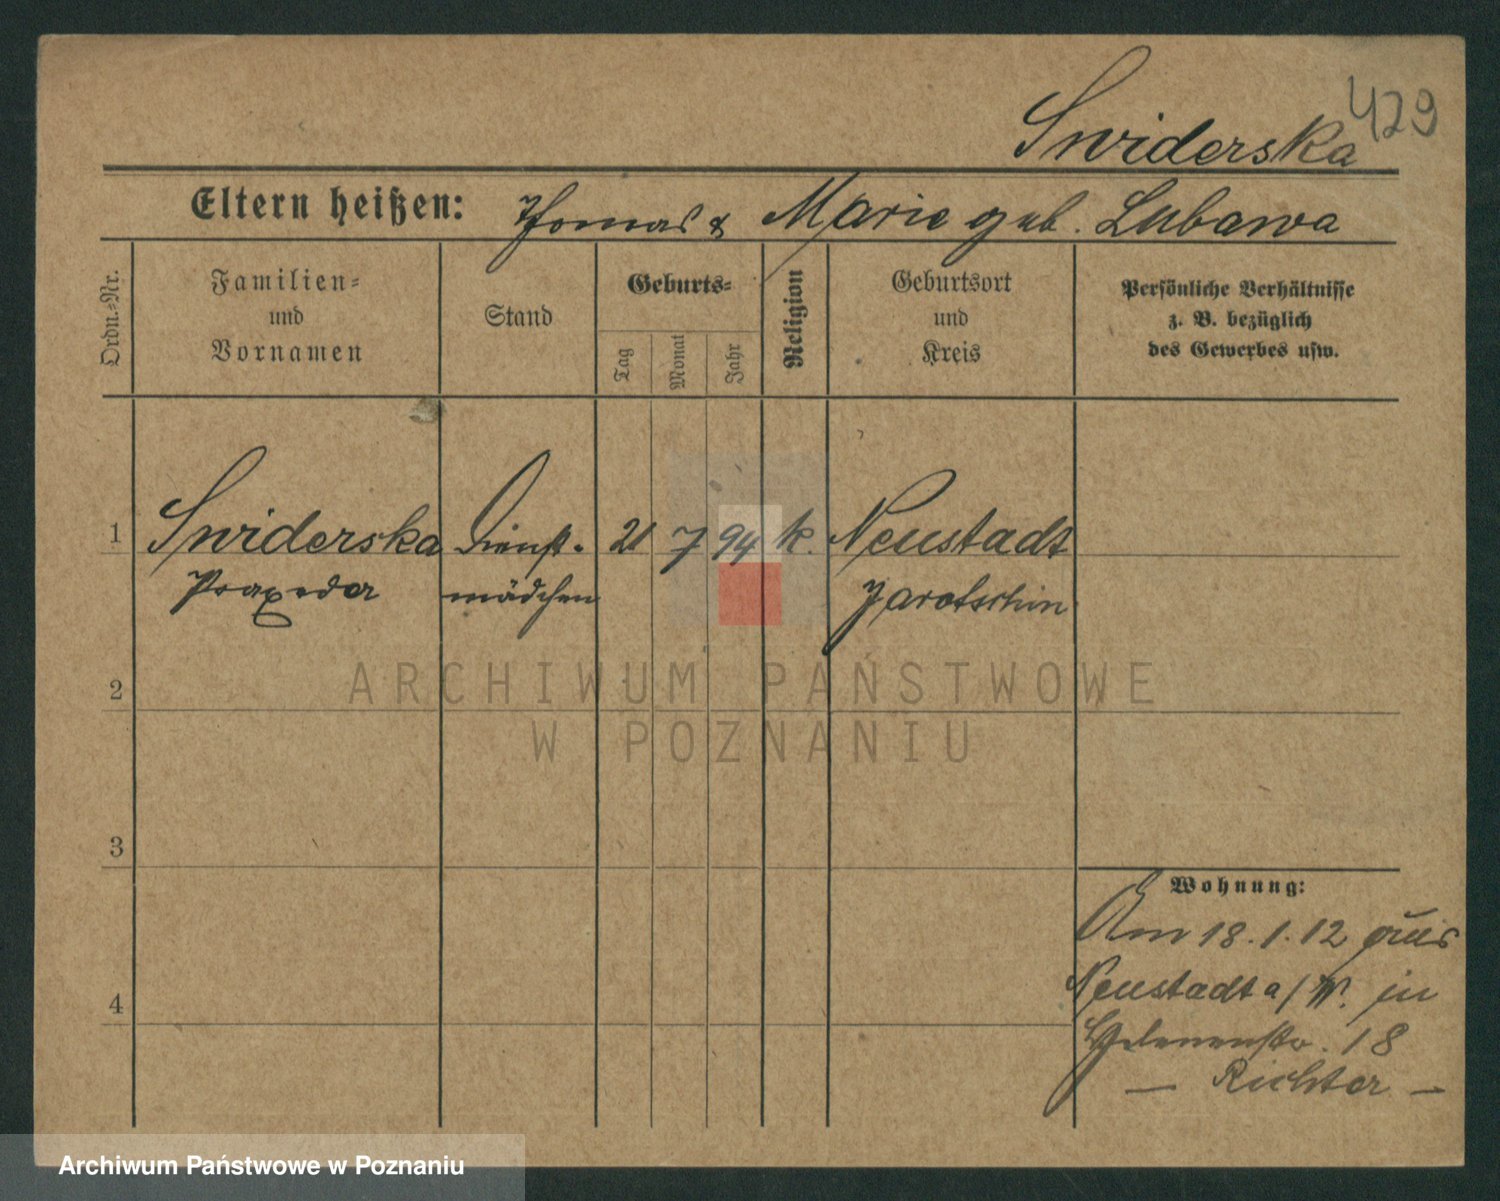 429
Swiderska
Eltern heißen: Thomas & Marie geb. Lubawa
Ordn.-Nr.
Familien-
und
Vornamen
Stand
Geburts-
Tag
Monat
Jahr
Religion
Geburtsort
und
Kreis
Persönliche Verhältnisse
z. B. bezüglich
des Gewerbes usw.
1 Swiderska Dienst- 21 7 94 k. Neustadt
Praxeda mädchen Jarotschin
2
ARCHIWUM PAŃSTWOWE
W POZNANIU
3
Wohnung:
Am 18.1.12 aus
Neustadt a/W. in
4
Helenenstr. 18
— Richter —
Archiwum Państwowe w Poznaniu